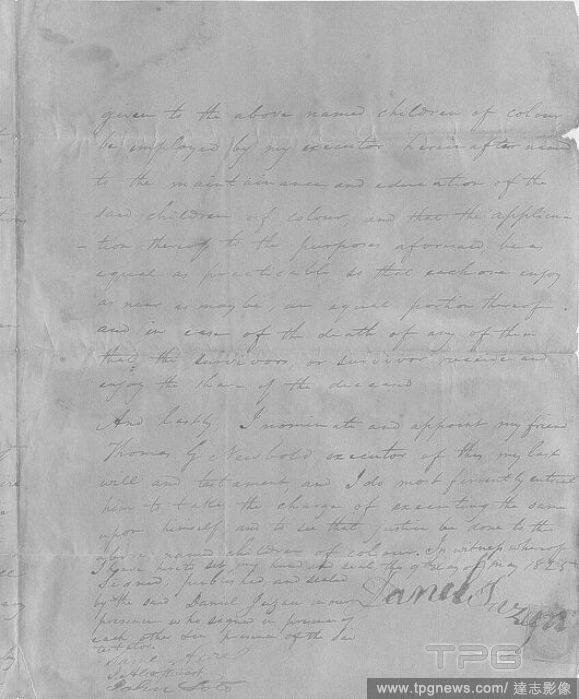 given to the above named children of colour
be employed by my executor hereinafter named
to the maintainance and education of the
said children of colour, and that the applica-
tion thereof to the purposes aforesaid, be as
equal as practicable so that each one enjoy
as near as may be, an equal portion thereof.
and in case of the death of any of them
that the survivors or survivor receive and
enjoy the share of the deceased
And lastly I nominate and appoint my friend
Thomas G Newbold executor of this my last
will and testament and I do most fervently entreat
him to take the charge of executing the same
upon himself and to see that justice be done to the
above named children of colour. In witness whereof
I have hereto set my hand and seal this 9th day of May 1825
Signed, published, and sealed
by the said Daniel Juzan in our
presence who signed in presence of
each other in presence of the
testator.
Daniel Juzan
TPG
www.tpgnews.com/達志影像